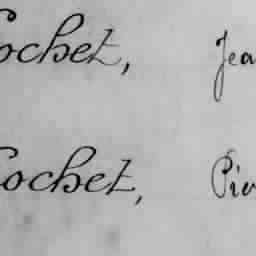 ochet, Jea
ochet, Pie